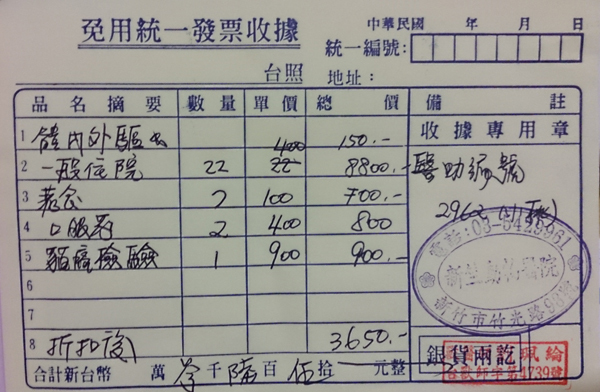 免用統一發票收據
中華民國 年 月 日
統一編號:
台照 地址:
品名摘要 數量 單價 總價 備註
收據專用章
1 體內外驅虫 150.-
2 一般住院 22 400 22 8800.-
醫助編號
3 7 100 700.-
2962
4 口服藥 2 400 800
5 貓瘟檢驗 1 900 900.-
電話:03-5429961
新竹動物醫院
新竹市竹光路98號
6
7
8 折扣後 3650.-
合計新台幣 萬 參千陸百伍拾 元整
銀貨兩訖
珮綸
字第4739號